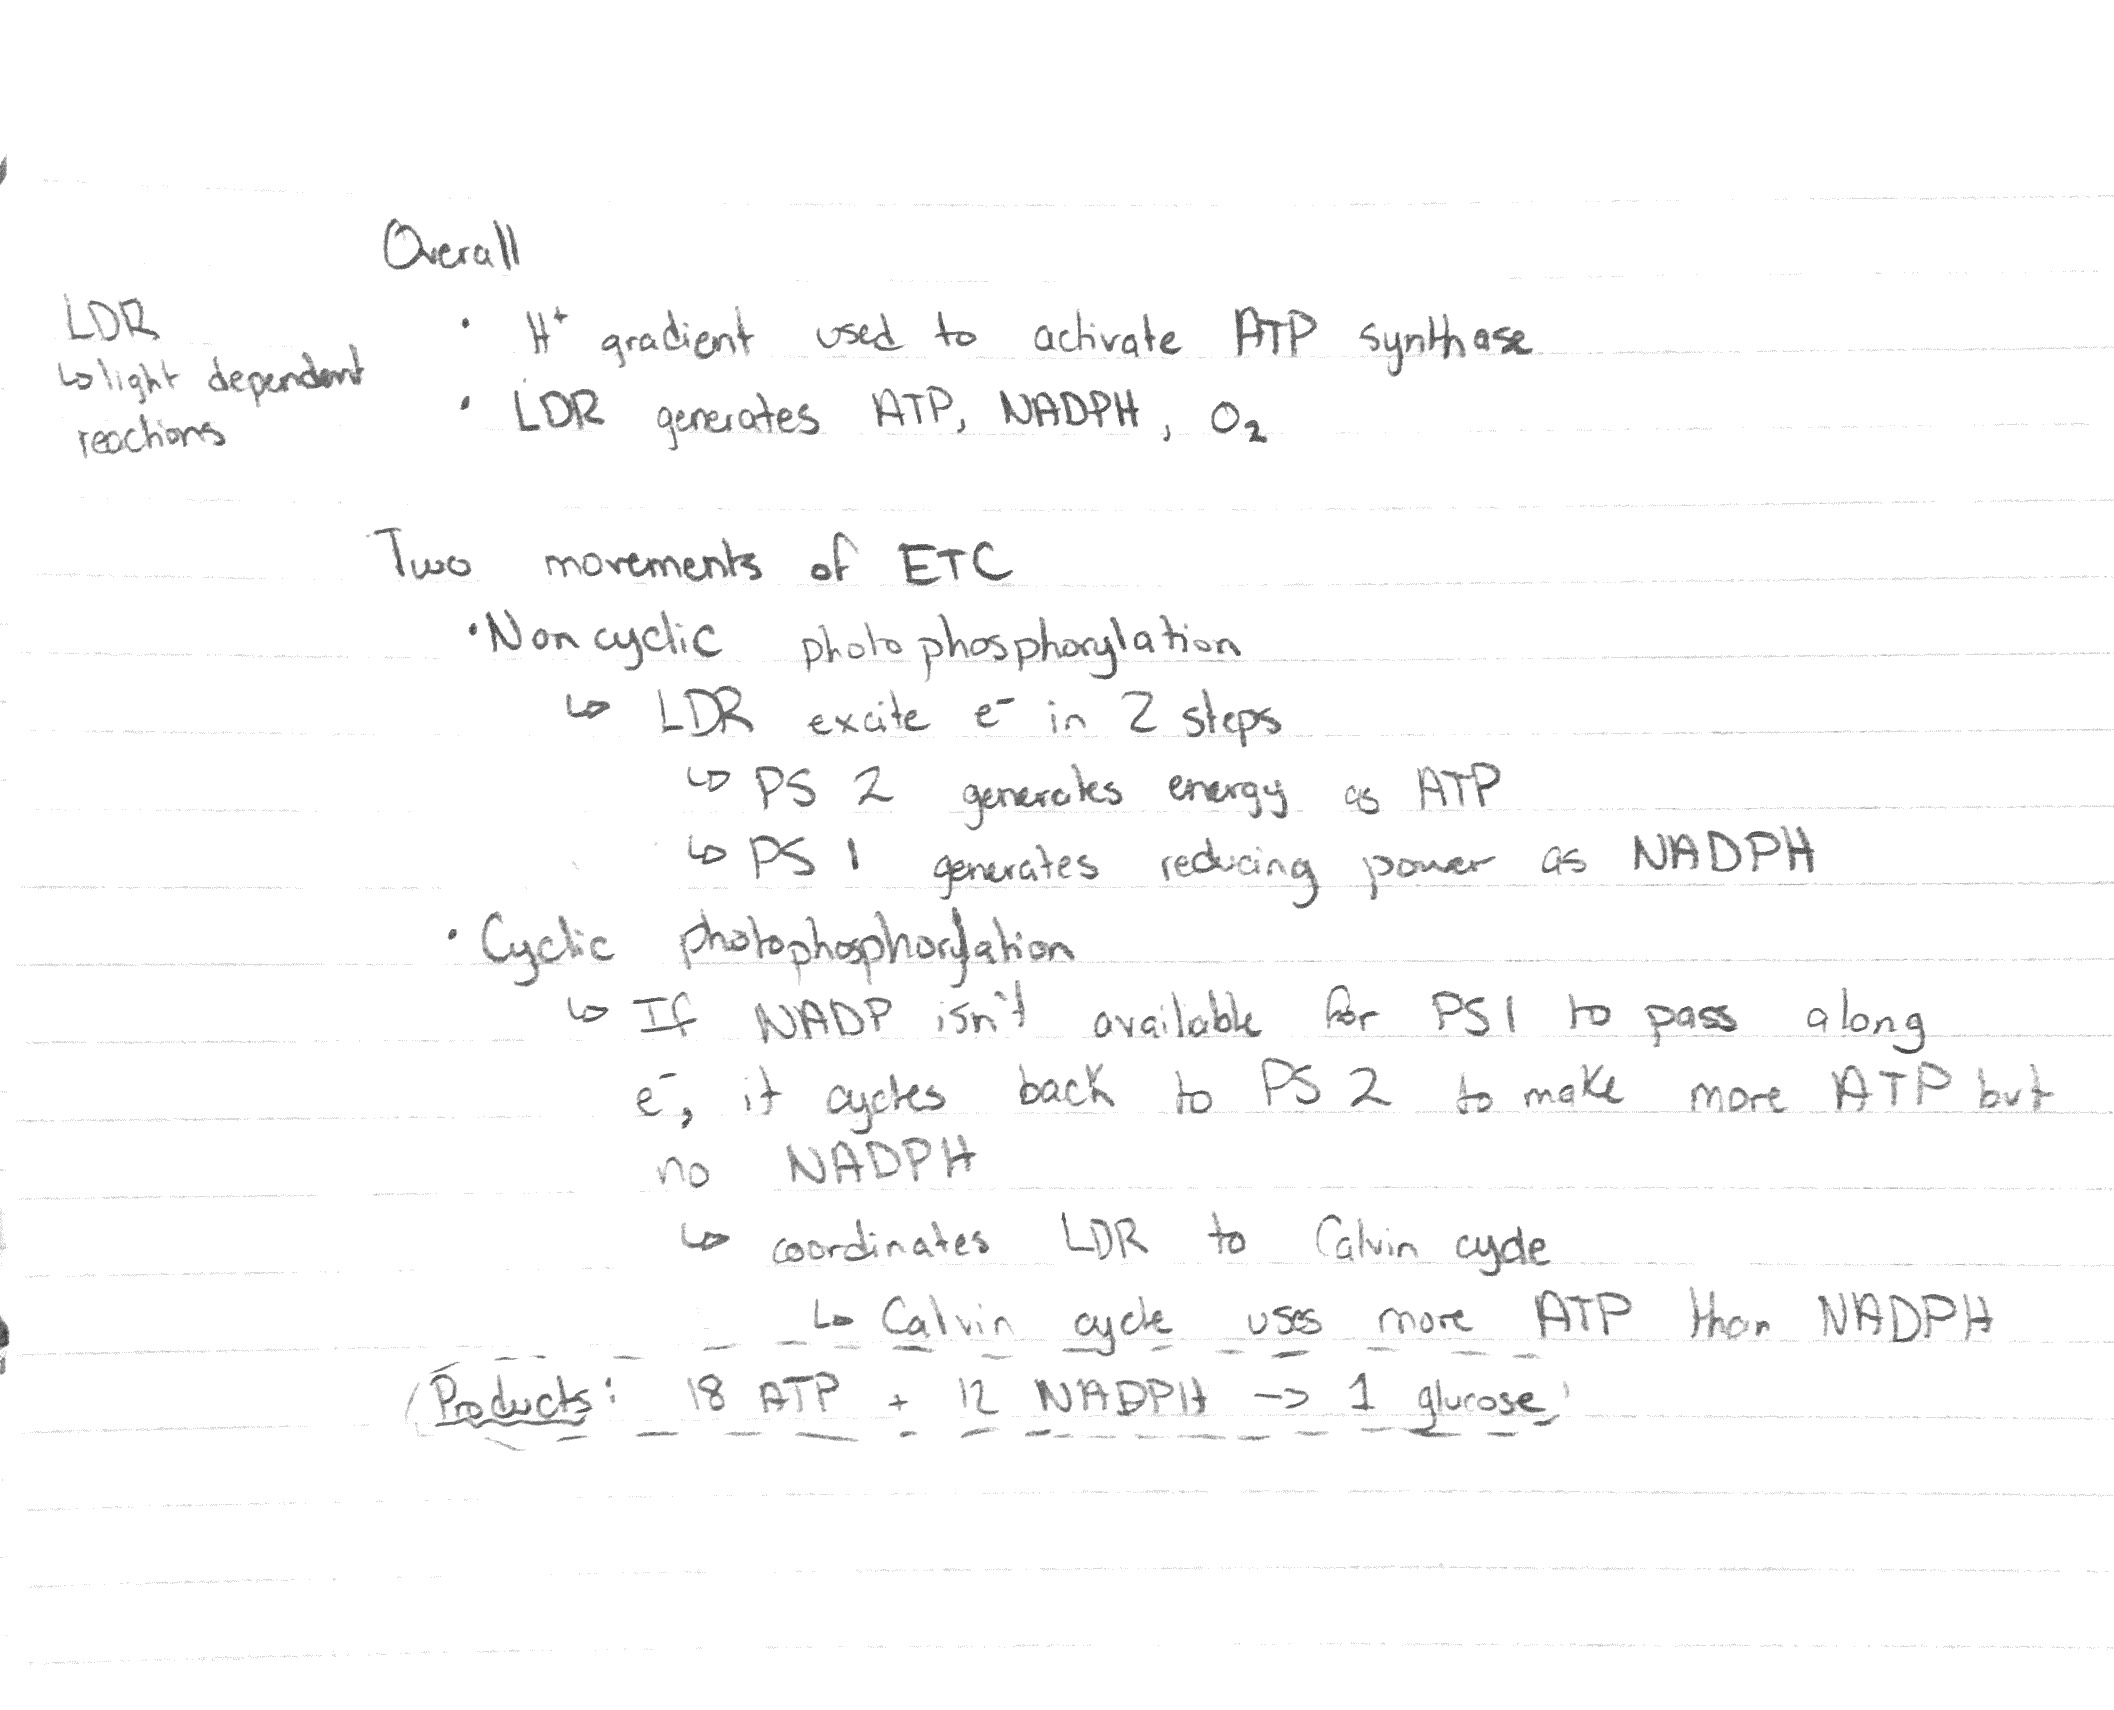 Overall
LDR
↳ light dependent
reactions
• H⁺ gradient used to activate ATP synthase
• LDR generates ATP, NADPH, O₂
Two movements of ETC
• Non cyclic photophosphorylation
↳ LDR excite e⁻ in 2 steps
↳ PS 2 generates energy as ATP
↳ PS 1 generates reducing power as NADPH
• Cyclic photophosphorylation
↳ If NADP isn't available for PS1 to pass along
e⁻, it cycles back to PS 2 to make more ATP but
no NADPH
↳ coordinates LDR to Calvin cycle
↳ Calvin cycle uses more ATP than NADPH
Products: 18 ATP + 12 NADPH -> 1 glucose